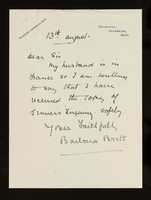 13th August -
Dear Sir
My husband is in
France so I am writing
to say that I have
received the copy of
Jenners Inquiry safely
Yours faithfully
Barbara